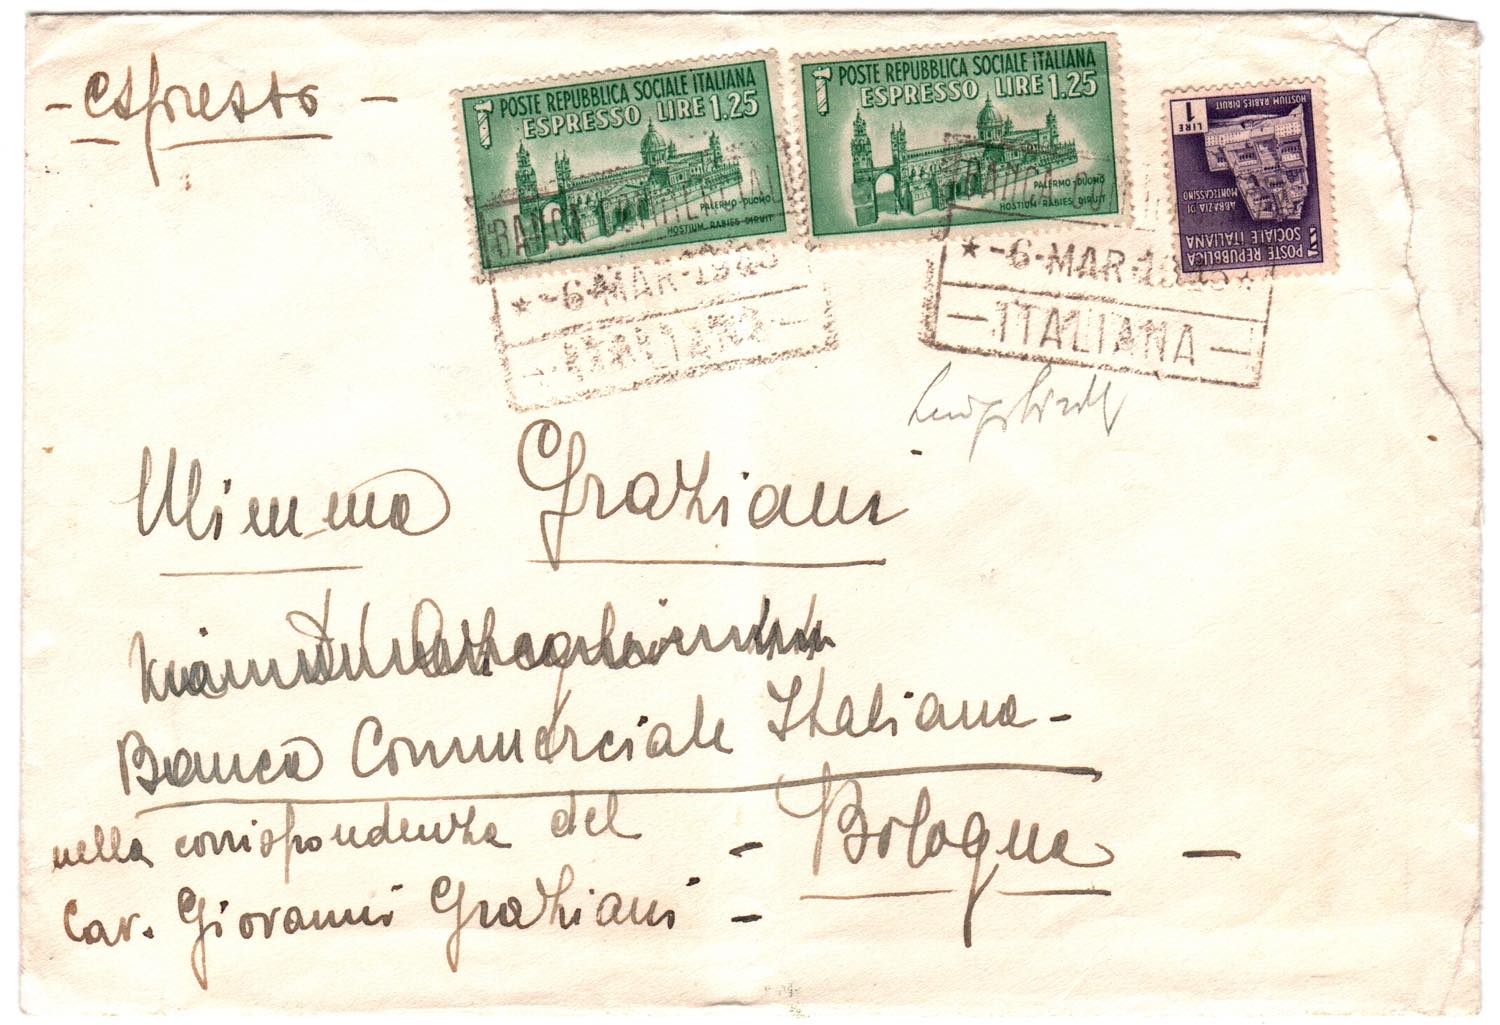 - espresso -
POSTE REPUBBLICA SOCIALE ITALIANA
ESPRESSO LIRE 1.25
PALERMO - DUOMO
HOSTIUM RABIES DIRUIT
POSTE REPUBBLICA SOCIALE ITALIANA
ESPRESSO LIRE 1.25
PALERMO - DUOMO
HOSTIUM RABIES DIRUIT
POSTE REPUBBLICA
SOCIALE ITALIANA
ABBAZIA DI
MONTECASSINO
LIRE 1
HOSTIUM RABIES DIRUIT
BANCA COMMERCIALE
* -6 MAR. 1945
- ITALIANA -
BANCA CO
* -6 MAR. 1945 *
- ITALIANA -
Mimma Graziani
Banca Commerciale Italiana -
nella corrispondenza del
- Bologna -
Cav. Giovanni Graziani -